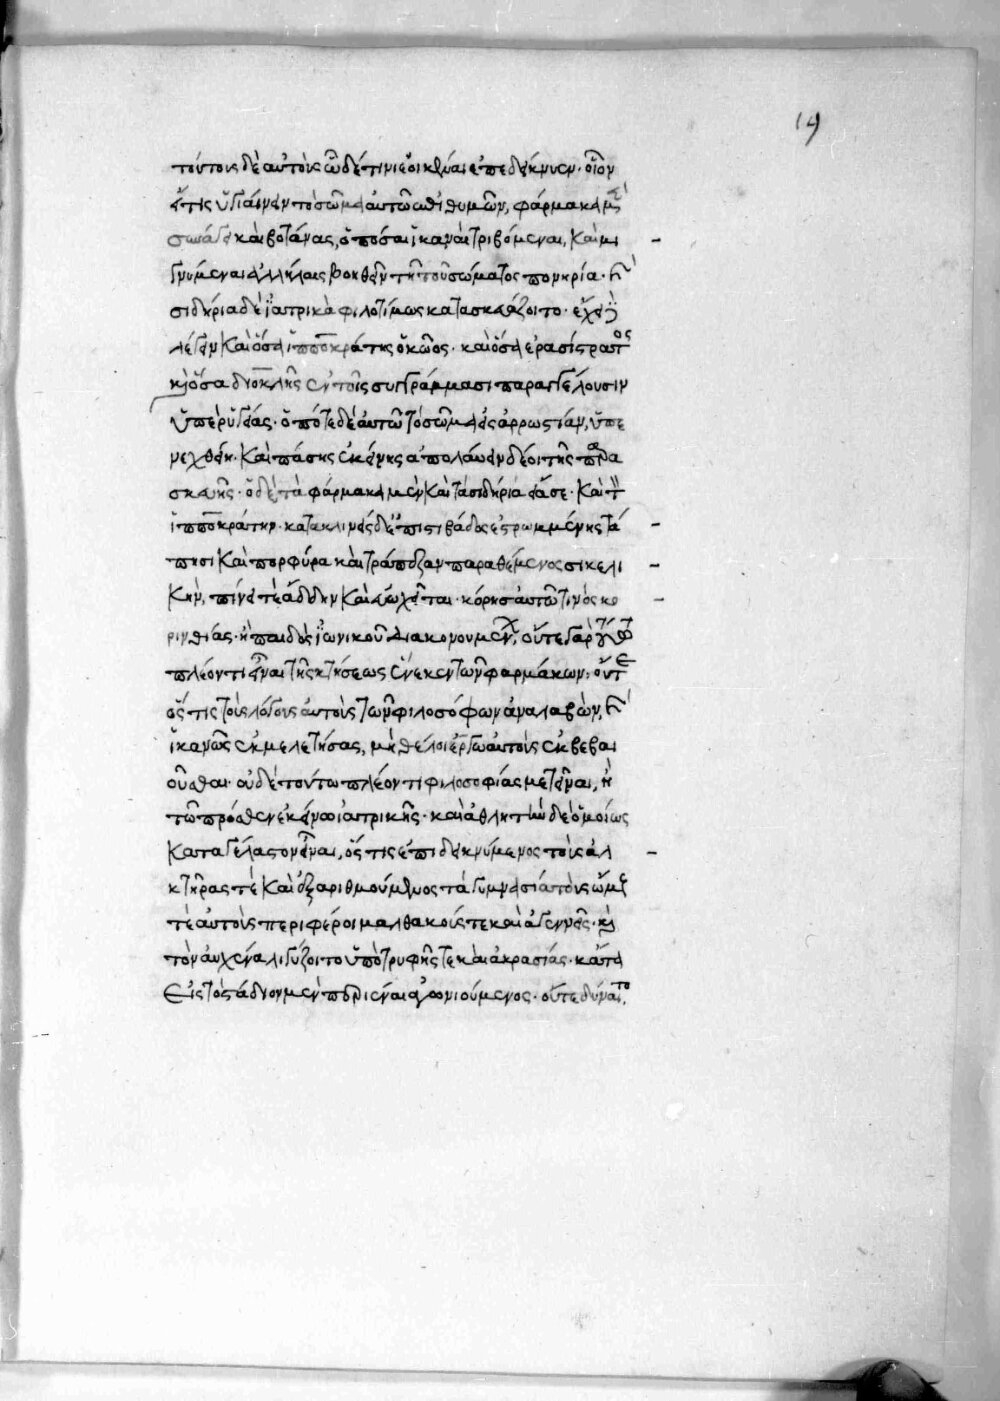 19
τούτοις δὲ αὐτοὺς ὧδέ τινι ἐοικέναι ἐπεδείκνυεν. οἷον
εἴ τις ὑγιαίνειν τὸ σῶμα αὐτῷ ἐπιθυμῶν, φάρμακα
καὶ βοτάνας, ὁπόσαι ἱκαναὶ τριβόμεναι, καὶ μι
γνύμεναι ἀλλήλαις βοηθεῖν τῇ τοῦ σώματος πονηρία. καὶ
σιδήρια δὲ ἰατρικὰ φιλοτίμως κατασκευάζοιτο. ἔχει
λέγειν καὶ ὅσα ἱπποκράτης ὁ κῶος. καὶ ὅσα ἐρασίστρατος
καὶ ὅσα διοκλῆς ἐν τοῖς συγγράμμασι παραγγέλουσιν
ὑπὲρ ὑγείας. ὁπότε δὲ αὐτῷ τὸ σῶμα ἐς ἀρρωστίαν, ὑπε
νεχθείη. καὶ πάσης ἐκείνης ἀπολάυειν δέοι τῆς παρα
σκευῆς. ὁ δὲ τὰ φάρμακα μὲν καὶ τὰ σιδήρια ἐάσει. καὶ τὸν
ἱπποκράτην. κατακλινεὶς δὲ ἐπὶ στιβάδος ἐστρωμμένης τά
πησι καὶ πορφύρα καὶ τράπεζαν παραθέμενος σικελι
κήν, πίνει τὲ ἄδδην καὶ εὐωχεῖται. κόρης αὐτῷ τινὸς κο
ρινθίας. ἢ παιδὸς ἰωνικοῦ διακονουμένου, οὔτε γὰρ
πλέον τι εἶναι τῆς κτήσεως ἕνεκεν τῶν φαρμάκων. οὔτε
ὅς τις τοὺς λόγους αὐτοὺς τῶν φιλοσόφων ἀναλαβὼν, καὶ
ἱκανῶς ἐκμελετήσας, μὴ θέλοι ἔργω αὐτοὺς ἐκβεβαι
οῦσθαι. οὐδὲ τούτω πλέον τι φιλοσοφίας μετεῖναι, ἢ
τῶ πρόσθεν ἐκείνω ἰατρικῆς. καὶ ἀθλητὴν δὲ ὁμοίως
καταγέλαστον εἶναι, ὅς τις ἐπιδεικνύμενος τοὺς ἁλ
κτῆρας τὲ καὶ ἐξαριθμούμενος τὰ γυμνάσια τοὺς ὤμους
τὲ αὐτοὺς περιφέροι μαλθακούς τε καὶ ἀγεννεῖς. καὶ
τὸν αὐχένα λιγύζοιτο ὑπὸ τρυφῆς τε καὶ ἀκρασίας. κἄπειτα
εἰς τὸ στάδιον μὲν παριέναι ἀγωνιούμενος. οὔτε δύναιτο